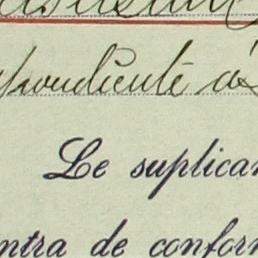 pondiente á
Le suplican
ntra de confor